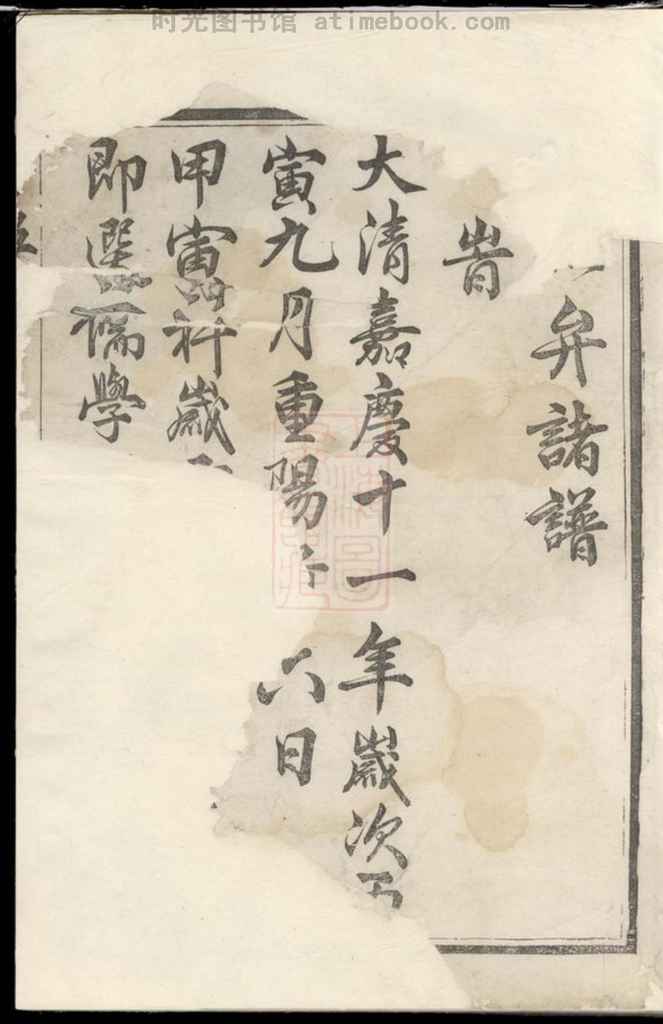 时光图书馆 atimebook.com
弁諸譜
旹
大清嘉慶十一年歲次丙
寅九月重陽六日
甲寅科歲
即選儒學